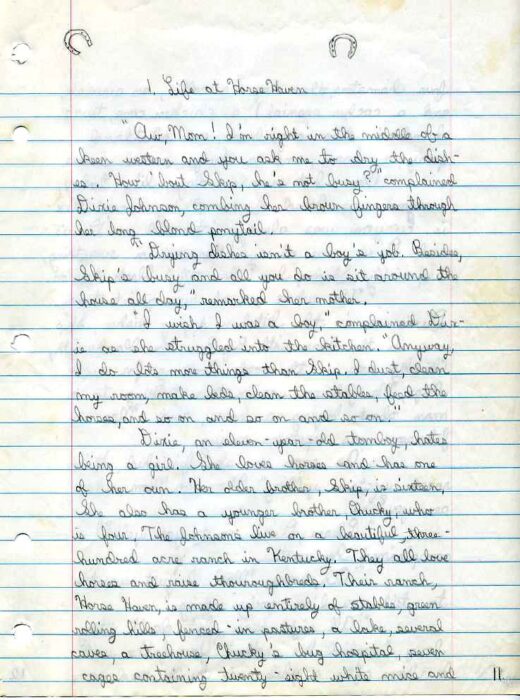 1. Life at Horse Haven
"Aw, Mom! I'm right in the middle of a
keen western and you ask me to dry the dish-
es. How 'bout Skip, he's not busy?" complained
Dixie Johnson, combing her brown fingers through
her long blond ponytail.
"Drying dishes isn't a boy's job. Besides,
Skip's busy and all you do is sit around the
house all day," remarked her mother.
"I wish I was a boy," complained Dix-
ie as she struggled into the kitchen. "Anyway,
I do lots more things than Skip. I dust, clean
my room, make beds, clean the stables, feed the
horses, and so on and so on and so on."
Dixie, an eleven-year-old tomboy, hates
being a girl. She loves horses and has one
of her own. Her older brother, Skip, is sixteen,
She also has a younger brother, Chucky, who
is four, The Johnsons live on a beautiful, three-
hundred acre ranch in Kentucky. They all love
horses and raise thouroughbreds. Their ranch,
Horse Haven, is made up entirely of stables, green
rolling hills, fenced-in pastures, a lake, several
caves, a treehouse, Chucky's bug hospital, seven
cages containing twenty-eight white mice and
11